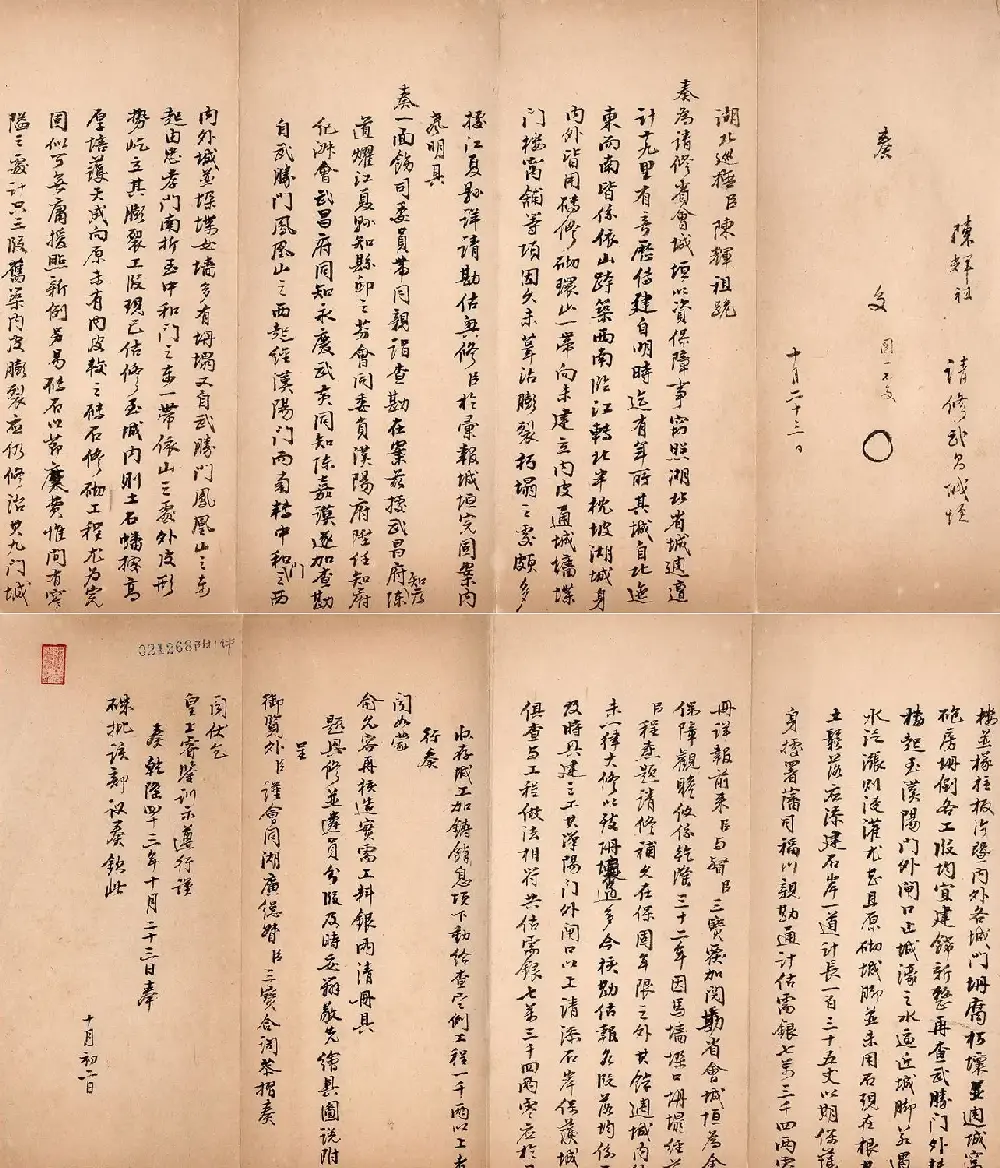 陳輝祖
請修武昌城垣
奏
交
圖不交
十月二十三日
湖北巡撫臣陳輝祖跪
奏為請修省會城垣以資保障事竊照湖北省城建造
計十九里有奇歷傳建自明時迄有年所其城自北迤
東而南皆係依山踄築西南臨江轉北半枕坡湖城身
內外皆用磚修砌環山一帶向未建立內皮通城墻垜
門樓窩舖等項因久未葺沾膨裂朽塌之處頗多
據江夏縣詳請勘估興修臣於彙報城垣完固案內
聲明具
奏一面飭司委員帶同親詣查勘在案茲據武昌府知府陳
道耀江夏縣知縣邱之芬會同委員漢陽府陞任知府
化洲會武昌府同知永慶武黃同知陳嘉謨逐加查勘
自武勝門鳳凰山之西起經漢陽門而南轉中和門之西
內外城並垜堞女墻多有坍塌又自武勝門鳳凰山之東
起由忠孝門南折至中和門之東一帶依山三處外皮形
勢屹立其膨裂工段現已估修至城內則土石蟠擁高
厚培護天成向原未有內皮較之磚石修砌工程尤為完
固似可無庸援照新例另易磚石以節糜費惟間有零
隘三處計只三段舊築內皮膨裂應仍修治其九門城
樓並椽柱板片暨內外各城門坍腐朽壞並週城窩
砲房坍倒各工段均宜建歸新整再查武勝門外
樓起至漢陽門外閘口止城濠之水逼近城脚若遇
水泛漲則浸灌尤甚且原砌城脚並未用石現在根
土鬆落應添建石岸一道計長一百三十五丈以期保護
身據署藩司福川親勘通計估需銀七萬三千四兩零
冊詳報前來臣與督臣三寶覆加閱勘省會城垣為全
保障觀瞻攸係乾隆三十二年因馬墻垜口坍塌經前
臣程燾題請修補久在保固年限之外其餘週城內
未一律大修以致坍壞過多今核勘估報各段落均係
及時具建之工其漢陽門外閘口以上請添石岸保護城
俱查與工程做法相符共估需銀七萬三千四兩零應於
收存城工加鎊餘息項下動給查定例工程一千兩以上者
行奏
聞如蒙
俞允容再核造實需工料銀兩清冊具
題興修並遴員分段及時妥辦敬先繪具圖說附
呈
御覽外臣謹會同湖廣總督臣三寶合詞恭摺奏
聞伏乞
皇上睿鑒訓示遵行謹
奏乾隆四十三年十月二十三日奉
硃批該部議奏欽此
十月初一日
021268